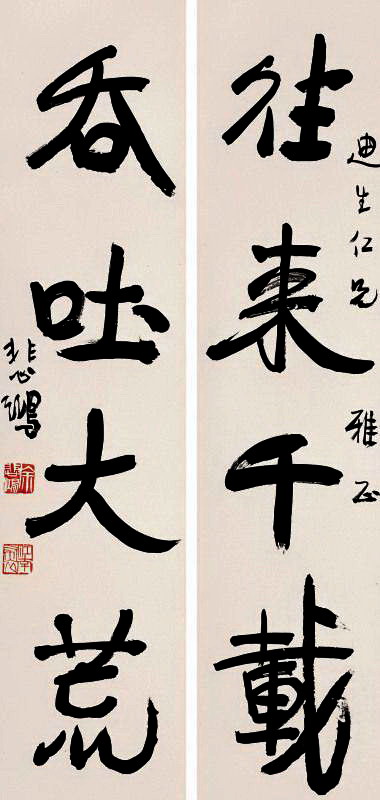 往来千載
迪生仁兄 雅正
吞吐大荒
悲鴻